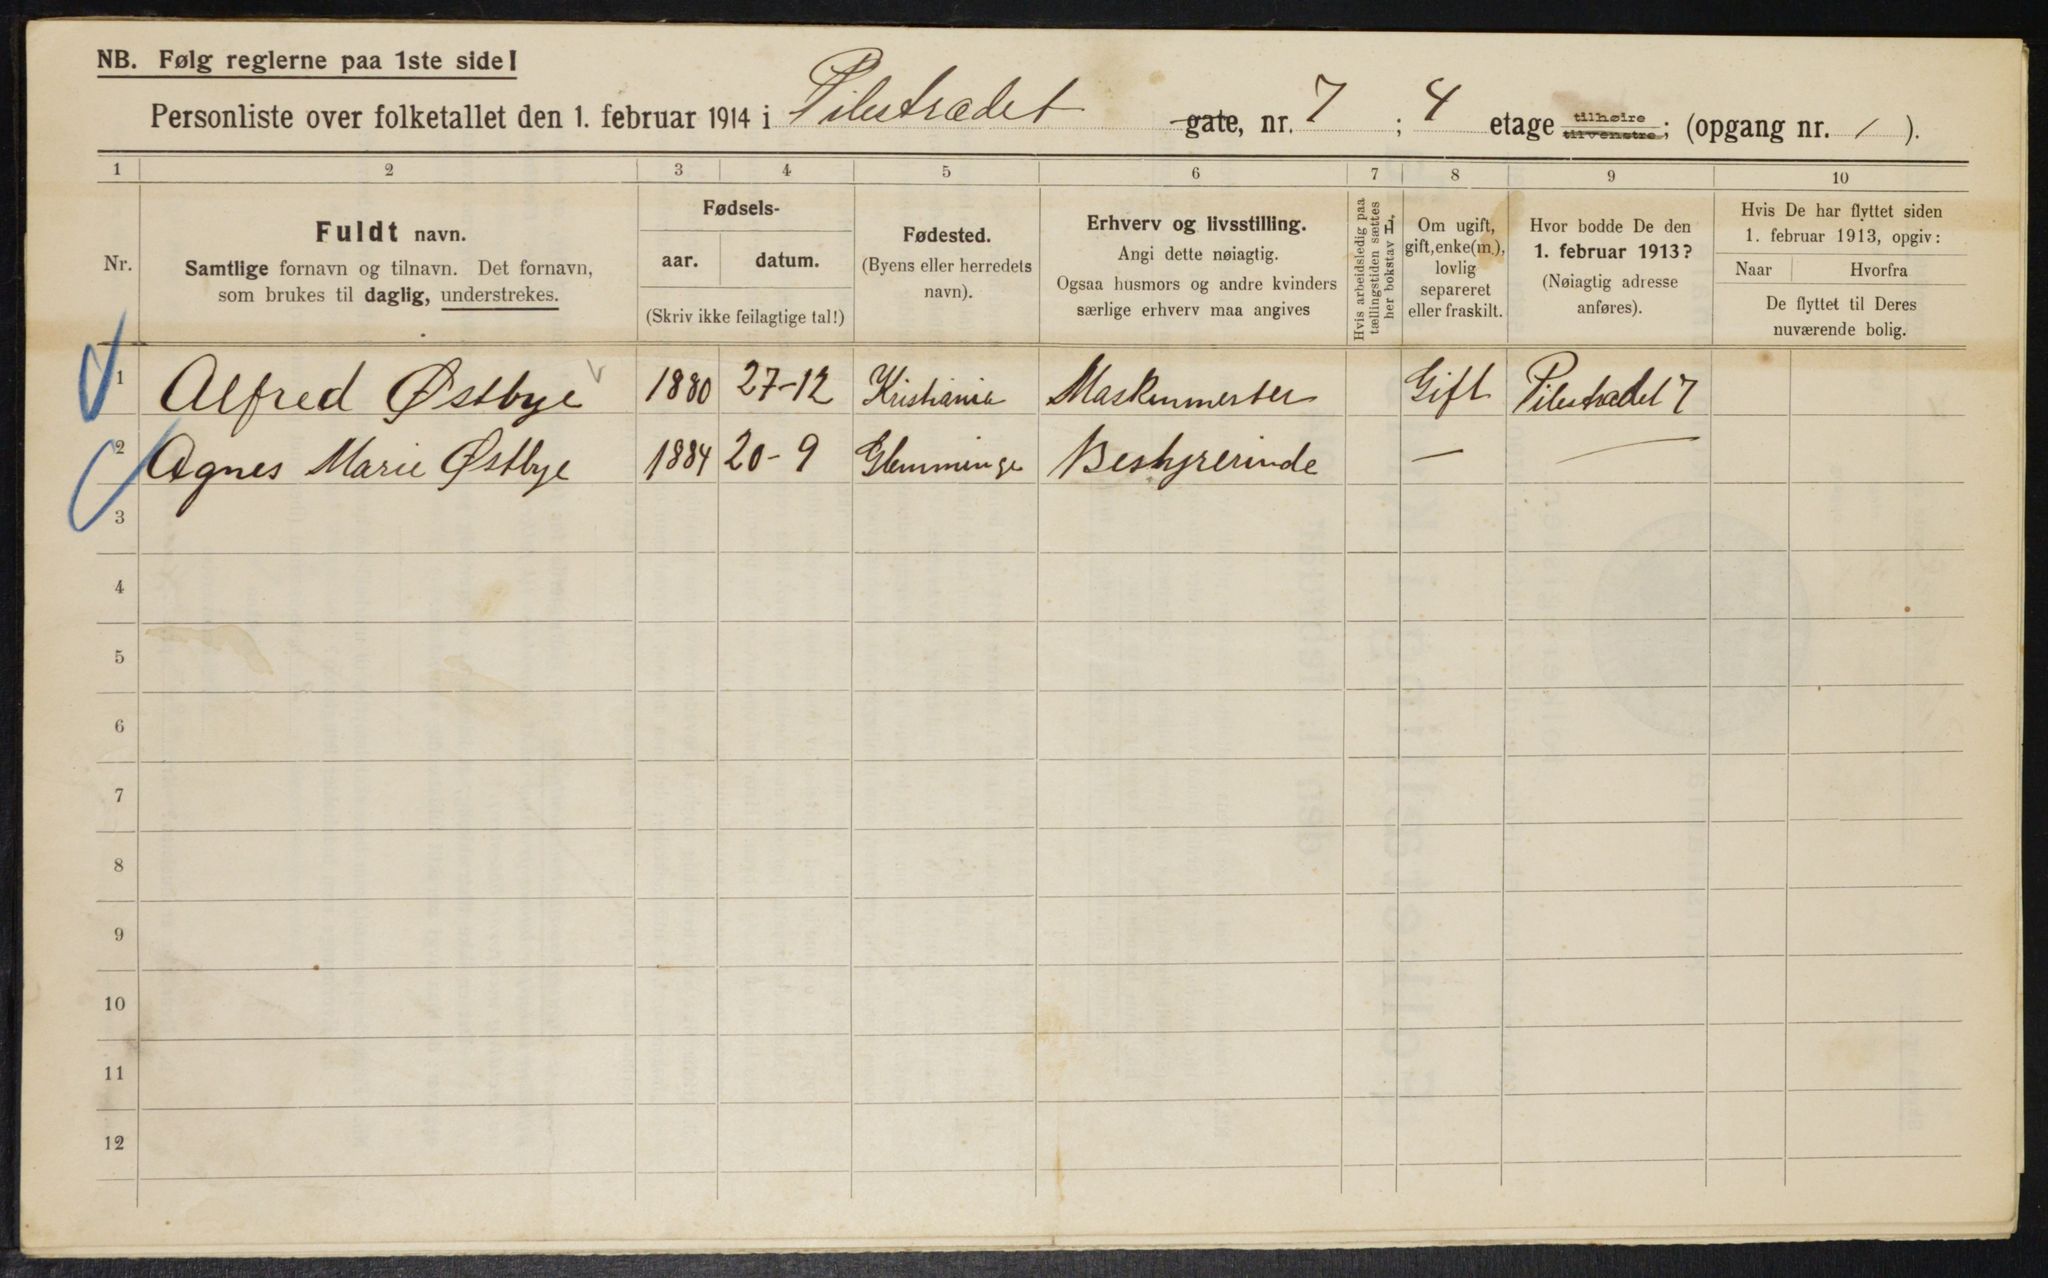 NB. Følg reglerne paa 1ste side!
Personliste over folketallet den 1. februar 1914 i Pilestrædet gate, nr. 7 ; 4 etage tilhøire tilvenstre; (opgang nr. 1 ).
1 2 3 4 5 6 7 8 9 10
Nr.
Fuldt navn.
Samtlige fornavn og tilnavn. Det fornavn,
som brukes til daglig, understrekes.
Fødsels-
aar. datum.
(Skriv ikke feilagtige tal!)
Fødested.
(Byens eller herredets
navn).
Erhverv og livsstilling.
Angi dette nøiagtig.
Ogsaa husmors og andre kvinders
særlige erhverv maa angives
Hvis arbeidsledig paa
tællingstiden sættes
her bokstav L,
Om ugift,
gift, enke(m.),
lovlig
separeret
eller fraskilt.
Hvor bodde De den
1. februar 1913?
(Nøiagtig adresse
anføres).
Hvis De har flyttet siden
1. februar 1913, opgiv:
Naar Hvorfra
De flyttet til Deres
nuværende bolig.
1 Alfred Østbye 1880 27-12 Kristiania Maskinmester Gift Pilestrædet 7
2 Agnes Marie Østbye 1884 20-9 Glemminge Bestyrerinde — —
3
4
5
6
7
8
9
10
11
12